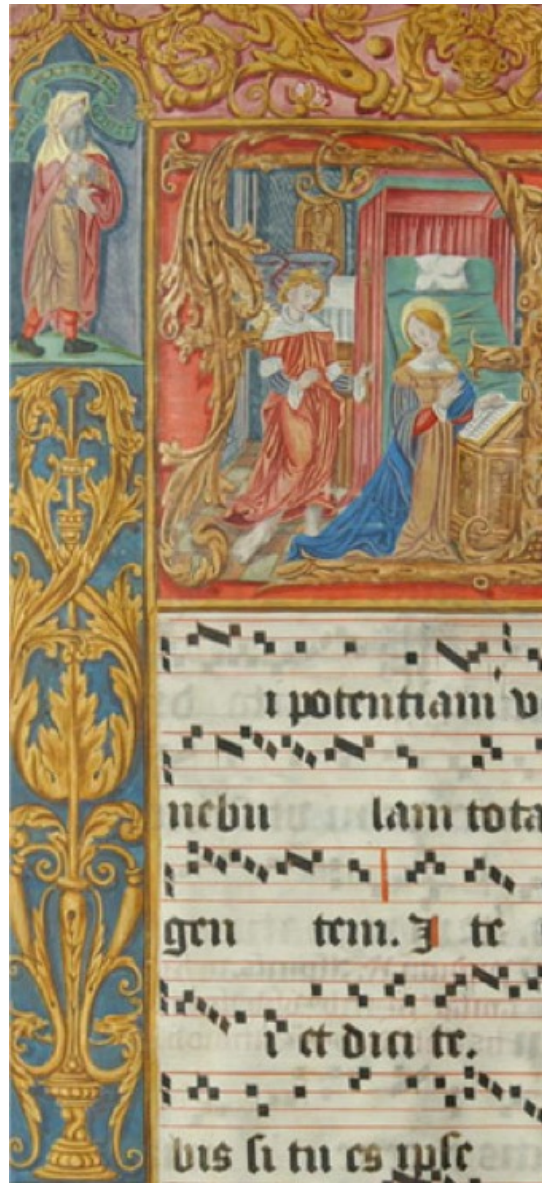 i potentiam v
nebu lam tota
gen tem. I te
i et dici te.
bis si tu es ipse